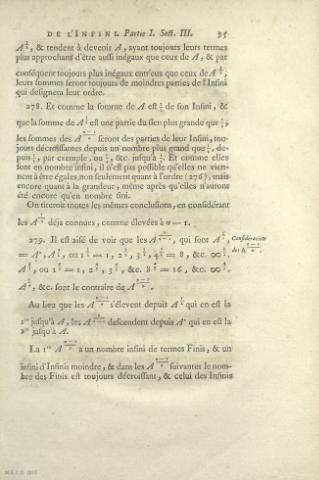 DE L'INFINI. Partie I. Sect. III. 35
& tendent à devenir A, ayant toujours leurs termes
plus approchans d'être aussi inégaux que ceux de A, & par
conséquent toujours plus inégaux entr'eux que ceux de
leurs sommes seront toujours de moindres parties de l'Infini
qui designera leur ordre.
278. Et comme la somme de A est ½ de son Infini, &
que la somme de est une partie du sien plus grande que ½,
les sommes des seront des parties de leur Infini, tou-
jours décroissantes depuis un nombre plus grand que ½, de-
puis par exemple, ou &c. jusqu'à ½. Et comme elles
sont en nombre infini, il n'est pas possible qu'elles ne vien-
nent à être égales, non seulement quant à l'ordre (276), mais
encore quant à la grandeur, même après qu'elles n'auront
été encore qu'en nombre fini.
On tireroit toutes les mêmes conclusions, en considérant
les déja connues, comme élevées à n — 1.
279. Il est aisé de voir que les qui sont
Considération
des
&c. sont le contraire de
Au lieu que les s'élevent depuis qui en est la
1re jusqu'à A, les descendent depuis A² qui en est la
jusqu'à A.
La 1re a un nombre infini de termes Finis, & un
infini d'Infinis moindre, & dans les suivantes le nom-
bre des Finis est toujours décroissant, & celui des Infinis